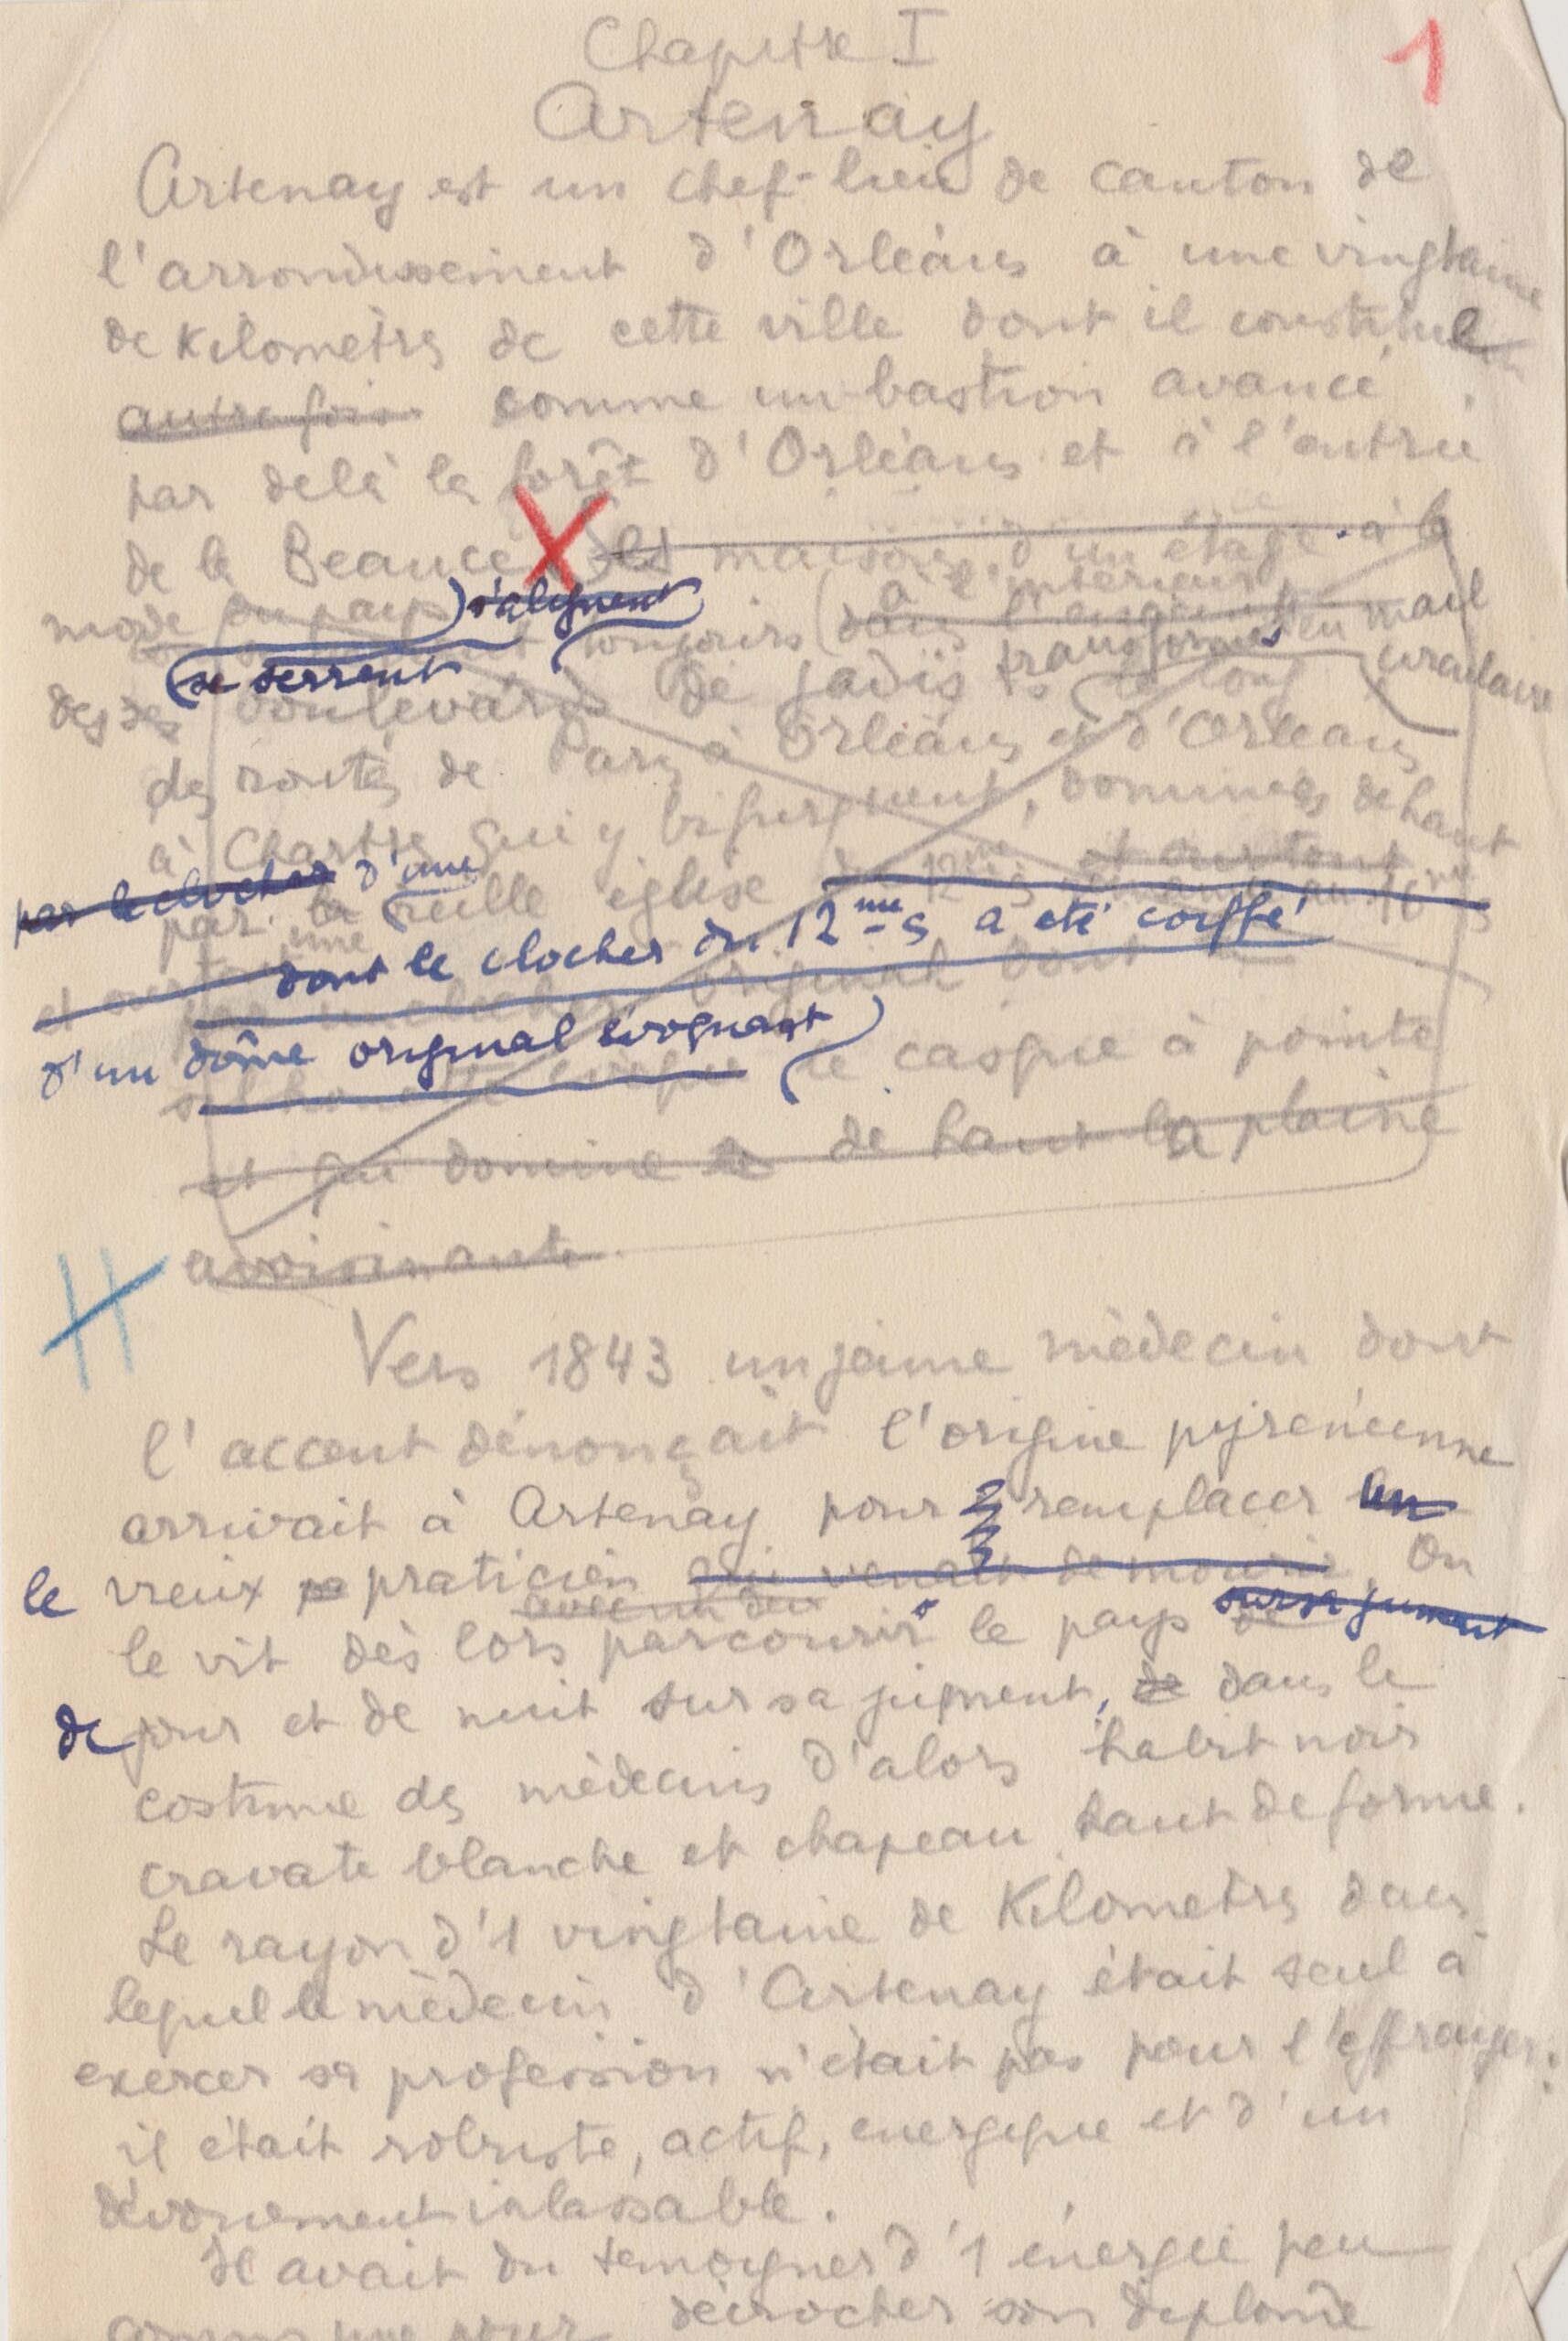 Chapitre I
1
Artenay
Artenay est un chef-lieu de canton de
l'arrondissement d'Orléans à une vingtaine
de kilomètres de cette ville dont il constitue
autrefois comme un bastion avancé
par delà la forêt d'Orléans et à l'entrée
de la Beauce X des maisons d'un étage à la
mode du pays s'alignent à l'intérieur
toujours dans en mail
se serrent transformés circulaire
des des boulevards de jadis le long
des routes de Paris à Orléans et d'Orléans
à Chartres qui y bifurquent, dominées de haut
par le clocher d'une
par la vieille église du 12me s et surtout
une
dont le clocher du 12me s a été coiffé
original dont
d'un dôme original évoquant
le casque à pointe
et qui domine de haut la plaine
avoisinante
Vers 1843 un jeune médecin dont
l'accent dénonçait l'origine pyrénéenne
arrivait à Artenay pour remplacer un
le vieux praticien qui venait de mourir. On
sur sa jument
le vit dès lors parcourir le pays
de jour et de nuit sur sa jument, de dans le
costume des médecins d'alors habit noir
cravate blanche et chapeau haut de forme.
Le rayon d'1 vingtaine de Kilomètres dans
lequel le médecin d'Artenay était seul à
exercer sa profession n'était pas pour l'effrayer:
il était robuste, actif, energique et d'un
dévouement inlassable.
Il avait du temoigner d'1 énergie peu
commune pour décrocher son diplome